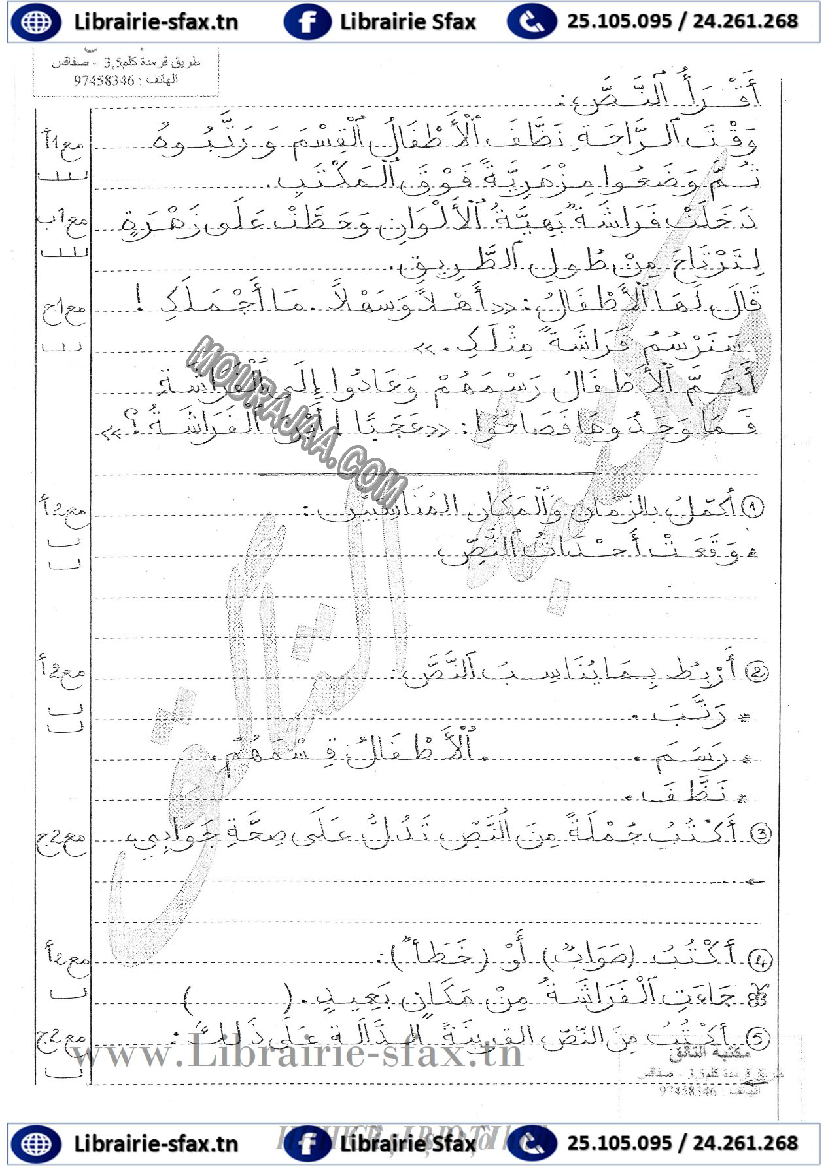 Librairie-sfax.tn Librairie Sfax 25.105.095 / 24.261.268
طريق قرمدة كلم3,5 - صفاقس
الهاتف : 97458346
أَقْرَأُ النَّصَّ :
وَقْتَ الرَّاحَةِ نَظَّفَ الْأَطْفَالُ الْقِسْمَ وَرَتَّبُوهُ
مع1أ
ثُمَّ وَضَعُوا مِزْهَرِيَّةً فَوْقَ الْمَكْتَبِ.
دَخَلَتْ فَرَاشَةٌ بَهِيَّةُ الْأَلْوَانِ وَحَطَّتْ عَلَى زَهْرَةٍ
مع1ب
لِتَرْتَاحَ مِنْ طُولِ الطَّرِيقِ.
قَالَ لَهَا الْأَطْفَالُ : << أَهْلاً وَسَهْلاً.. مَا أَجْمَلَكِ !
مع1ج
سَنَرْسُمُ فَرَاشَةً مِثْلَكِ. >>
أَتَمَّ الْأَطْفَالُ رَسْمَهُمْ وَعَادُوا إِلَى الْفَرَاشَةِ
فَمَا وَجَدُوهَا فَصَاحُوا : << عَجَبًا ! أَيْنَ الْفَرَاشَةُ ؟ >>
MOURAJAA.COM
① أُكَمِّلُ بِالزَّمَانِ وَالْمَكَانِ الْمُنَاسِبَيْنِ :
مع2أ
* وَقَعَتْ أَحْدَاثُ النَّصِّ
② أَرْبِطُ بِمَا يُنَاسِبُ النَّصَّ :
مع2أ
* رَتَّبَ .
* رَسَمَ . . الْأَطْفَالُ قِسْمَهُمْ.
* نَظَّفَ .
③ أَكْتُبُ جُمْلَةً مِنَ النَّصِّ تَدُلُّ عَلَى صِحَّةِ جَوَابِي :
مع2ج
④ أَكْتُبُ (صَوَابٌ) أَوْ (خَطَأٌ) :
مع2أ
جَاءَتِ الْفَرَاشَةُ مِنْ مَكَانٍ بَعِيدٍ. ( )
⑤ أَكْتُبُ مِنَ النَّصِّ القَرِينَةَ الدَّالَّةَ عَلَى ذَلِكَ :
مع2ج
www.Librairie-sfax.tn
مكتبة التألق
طريق قرمدة كلم3,5 - صفاقس
الهاتف : 97458346
Librairie-sfax.tn Librairie Sfax 25.105.095 / 24.261.268